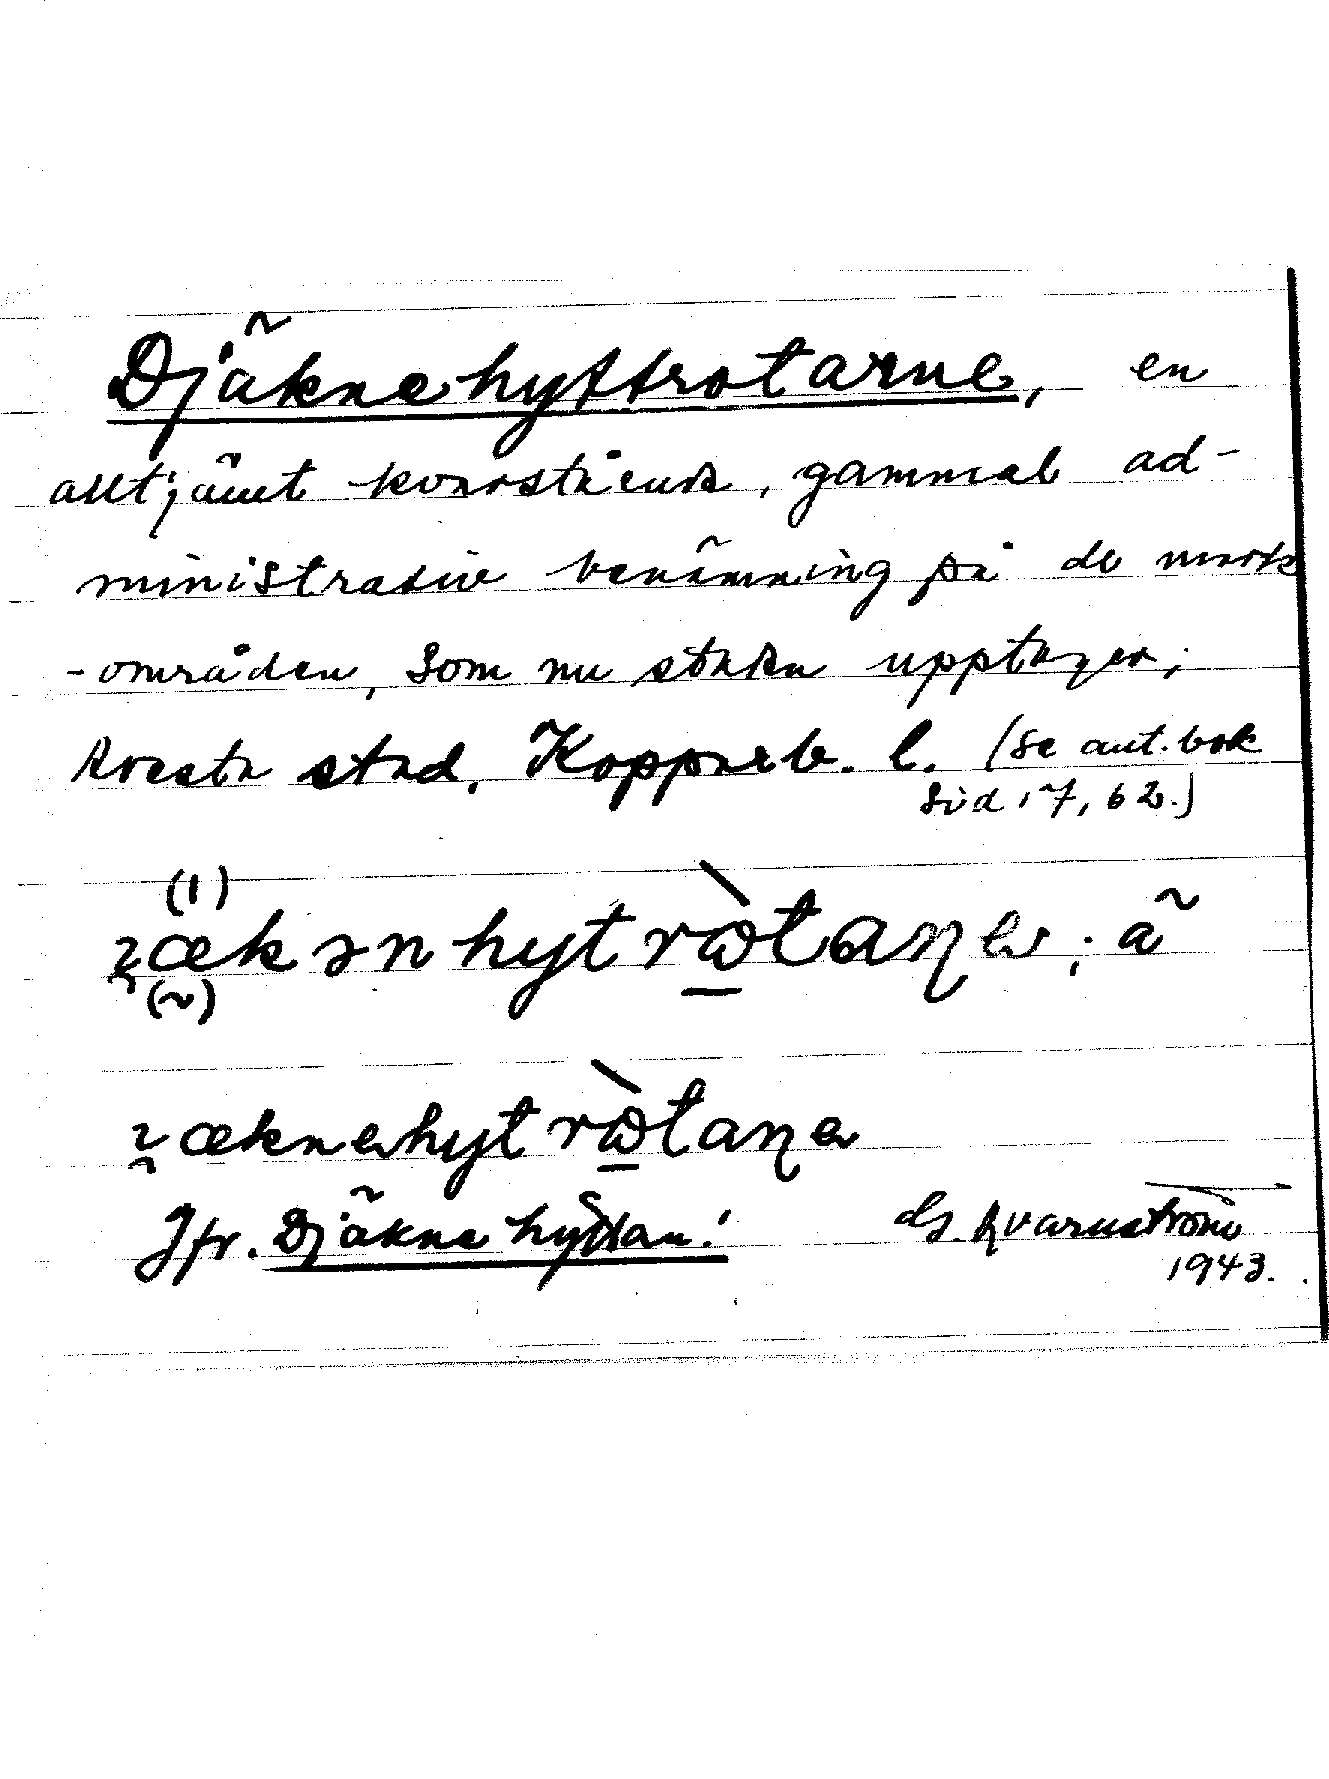 Djäknehyttrotarne, en
alltjämt kvarstående, gammal ad-
ministrativ benämning på de mark
-områden, som nu staden upptager;
Avesta stad, Kopparb. l. (se ant.bok
sid 17, 62.)
(1)
ꝛækənhytrὼtaꞃe; ä
(~)
ꝛæknehytrὼtaꞃe
Jfr. Djäknehyttan! G. Qvarnström
1943.